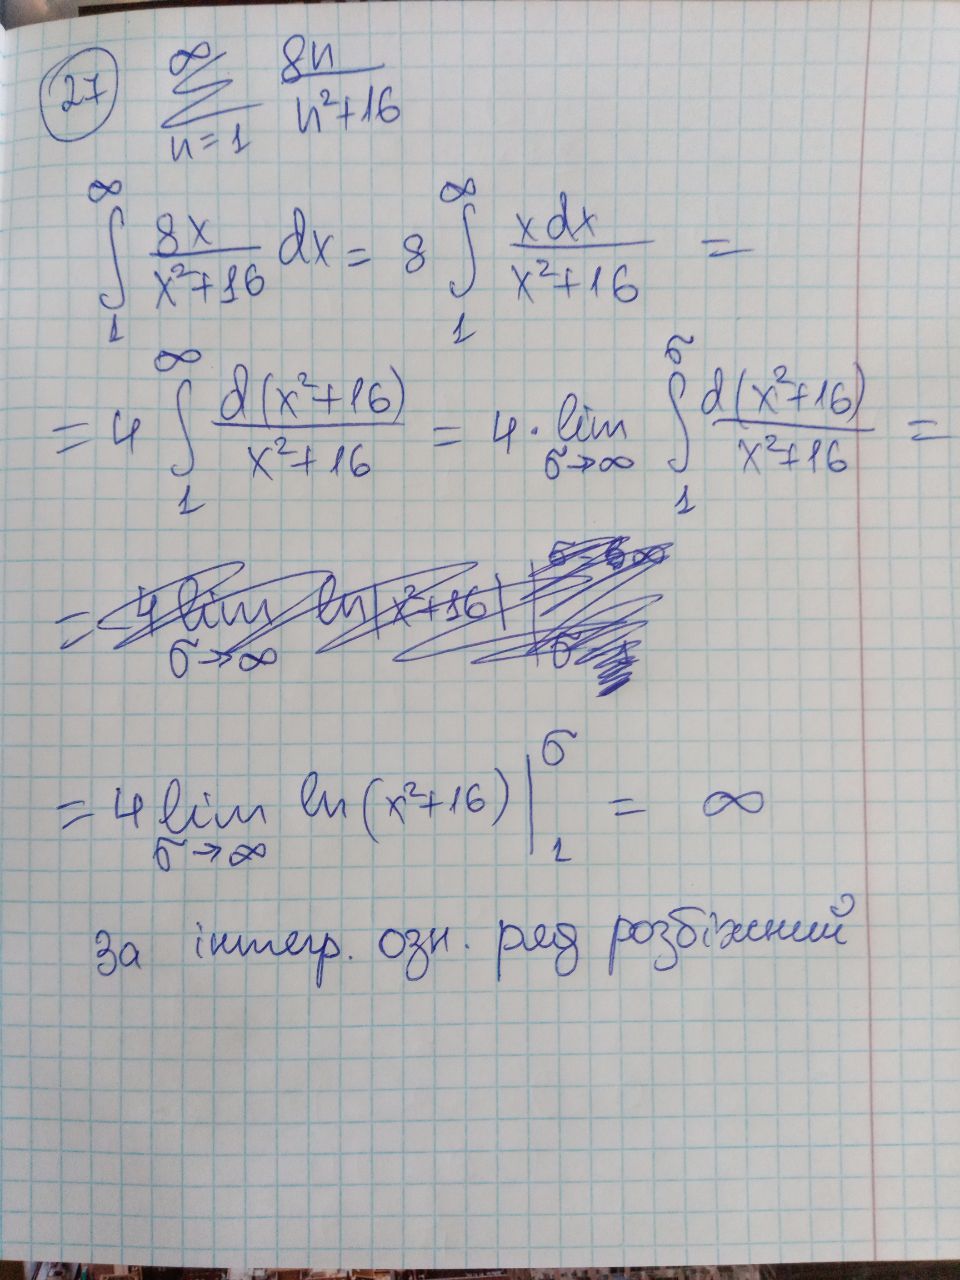 27 ∞ ∑ n=1 8n / n²+16
∞ ∫ 1 8x / x²+16 dx = 8 ∞ ∫ 1 x dx / x²+16 =
= 4 ∞ ∫ 1 d(x²+16) / x²+16 = 4 · lim б→∞ б ∫ 1 d(x²+16) / x²+16 =
= 4 lim б→∞ ln|x²+16| |
= 4 lim б→∞ ln(x²+16) | б 1 = ∞
За інтегр. озн. ряд розбіжний